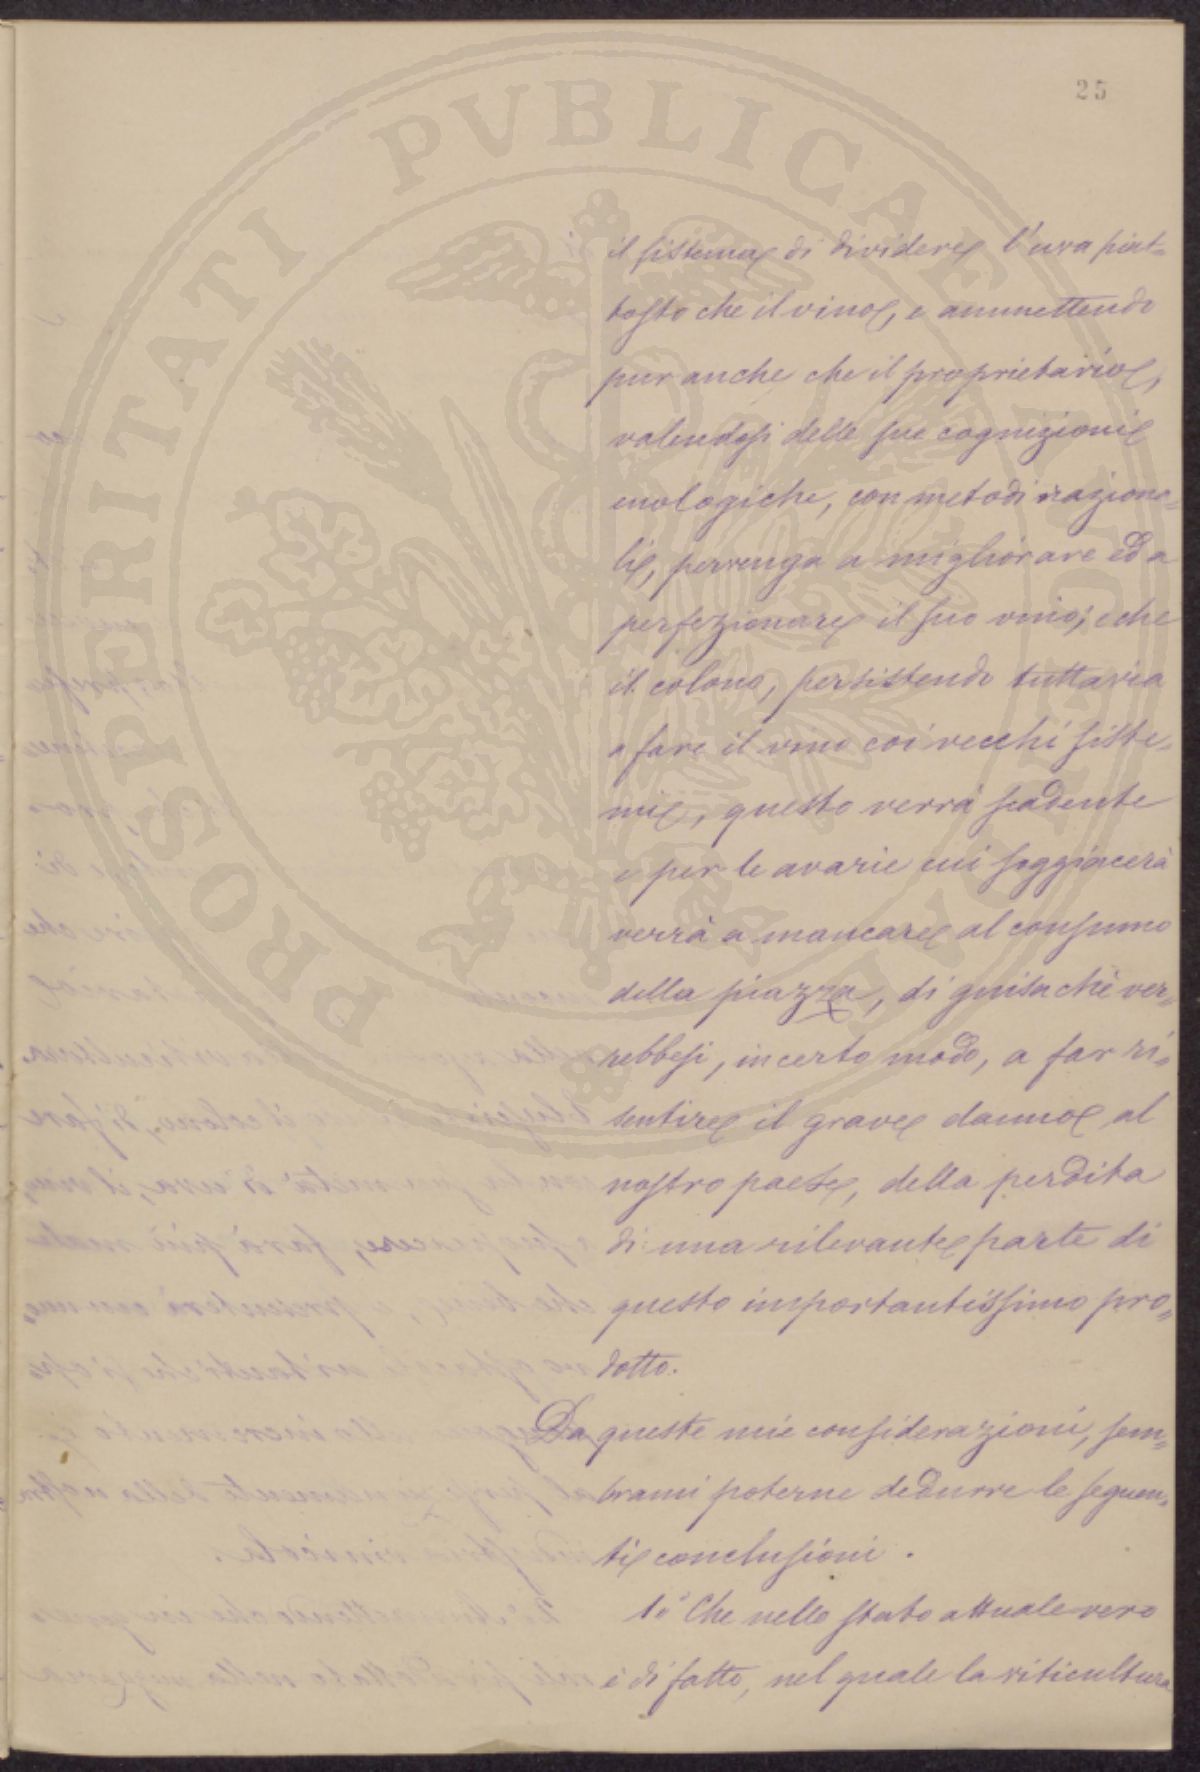 25
PROSPERITATI PUBLICAE
il sistema di dividere l'uva piut=
tosto che il vino, e ammettendo
pur anche che il proprietario,
valendosi delle sue cognizioni
enologiche, con metodi raziona=
li, pervenga a migliorare ed a
perfezionare il suo vino; e che
il colono, persistendo tuttavia
a fare il vino coi vecchi siste=
mi, questo verrà scadente
e per le avarie cui soggiacerà
verrà a mancare al consumo
della piazza, di guisa chè ver=
rebbesi, in certo modo, a far ri=
sentire il grave danno al
nostro paese, della perdita
di una rilevante parte di
questo importantissimo pro=
dotto.
Da queste mie considerazioni, sem=
brami poterne dedurre le seguen=
ti conclusioni.
1° Che nello stato attuale vero
e di fatto, nel quale la viticultura